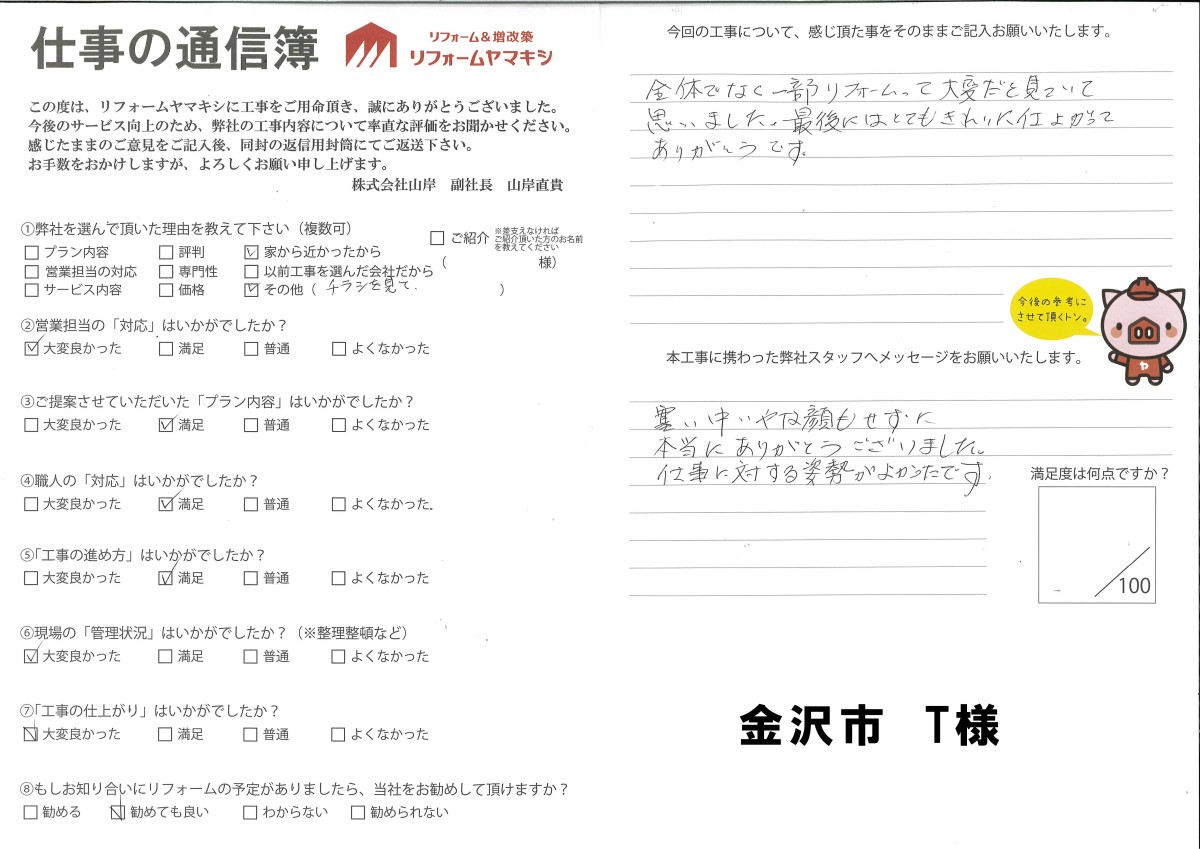 仕事の通信簿
リフォーム&増改築
リフォームヤマキシ
この度は、リフォームヤマキシに工事をご用命頂き、誠にありがとうございました。
今後のサービス向上のため、弊社の工事内容について率直な評価をお聞かせください。
感じたままのご意見をご記入後、同封の返信用封筒にてご返送下さい。
お手数をおかけしますが、よろしくお願い申し上げます。
株式会社山岸 副社長 山岸直貴
①弊社を選んで頂いた理由を教えて下さい(複数可)
□ プラン内容 □ 評判 ☑ 家から近かったから
□ ご紹介 ※差支えなければ
ご紹介頂いた方のお名前
を教えてください
( 様)
□ 営業担当の対応 □ 専門性 □ 以前工事を選んだ会社だから
□ サービス内容 □ 価格 ☑ その他( チラシを見て. )
②営業担当の「対応」はいかがでしたか?
☑ 大変良かった □ 満足 □ 普通 □ よくなかった
③ご提案させていただいた「プラン内容」はいかがでしたか?
□ 大変良かった ☑ 満足 □ 普通 □ よくなかった
④職人の「対応」はいかがでしたか?
□ 大変良かった ☑ 満足 □ 普通 □ よくなかった
⑤「工事の進め方」はいかがでしたか?
□ 大変良かった ☑ 満足 □ 普通 □ よくなかった
⑥現場の「管理状況」はいかがでしたか?(※整理整頓など)
☑ 大変良かった □ 満足 □ 普通 □ よくなかった
⑦「工事の仕上がり」はいかがでしたか?
☑ 大変良かった □ 満足 □ 普通 □ よくなかった
⑧もしお知り合いにリフォームの予定がありましたら、当社をお勧めして頂けますか?
□ 勧める ☑ 勧めても良い □ わからない □ 勧められない
今回の工事について、感じ頂た事をそのままご記入お願いいたします。
全体でなく一部リフォームって大変だと見ていて
思いました。最後にはとてもきれいに仕上がって
ありがとうです。
今後の参考に
させて頂くトン。
ヤ
本工事に携わった弊社スタッフへメッセージをお願いいたします。
寒い中いやな顔もせずに
本当にありがとうございました。
仕事に対する姿勢がよかったです.
満足度は何点ですか?
/100
金沢市 T様